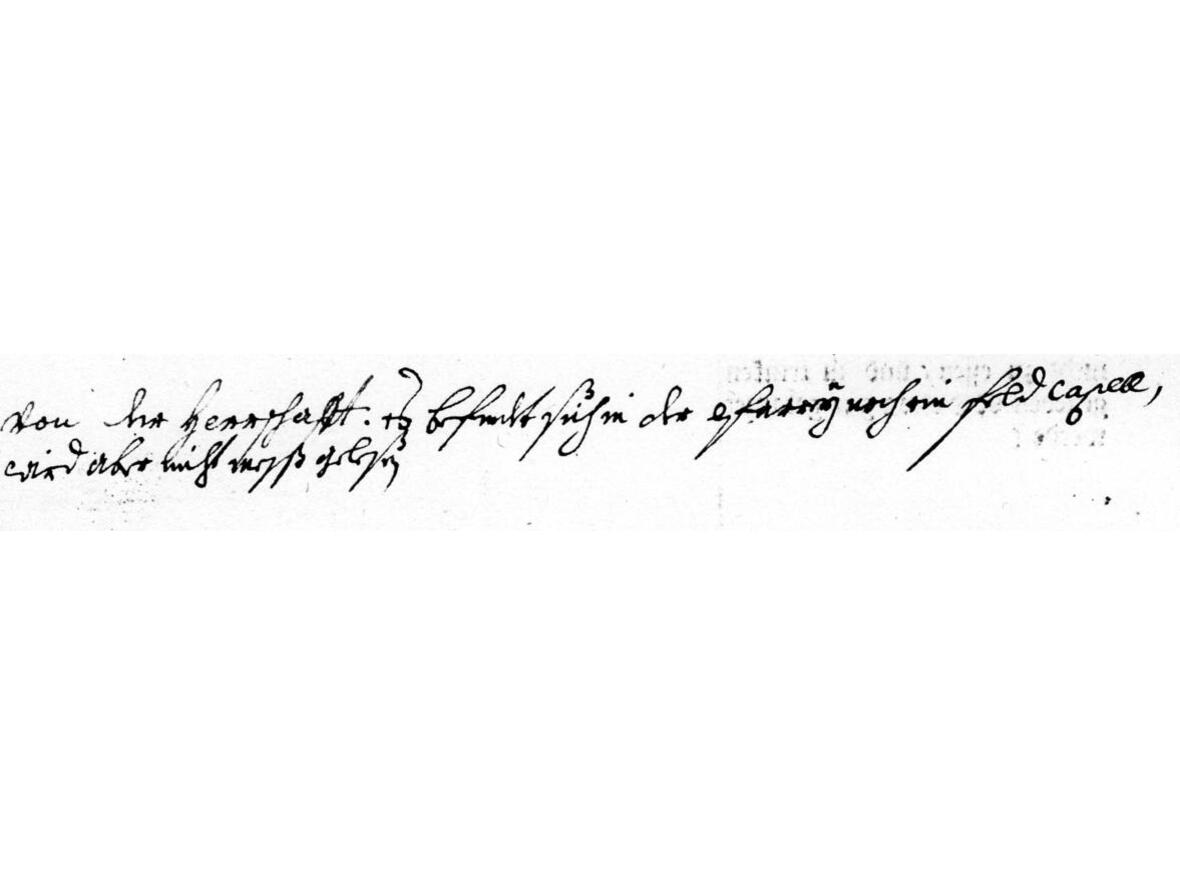 von der Herrschafft. es befindet sich in der pfarrÿ noch ein feld capell,
wird aber nicht mess gelesen